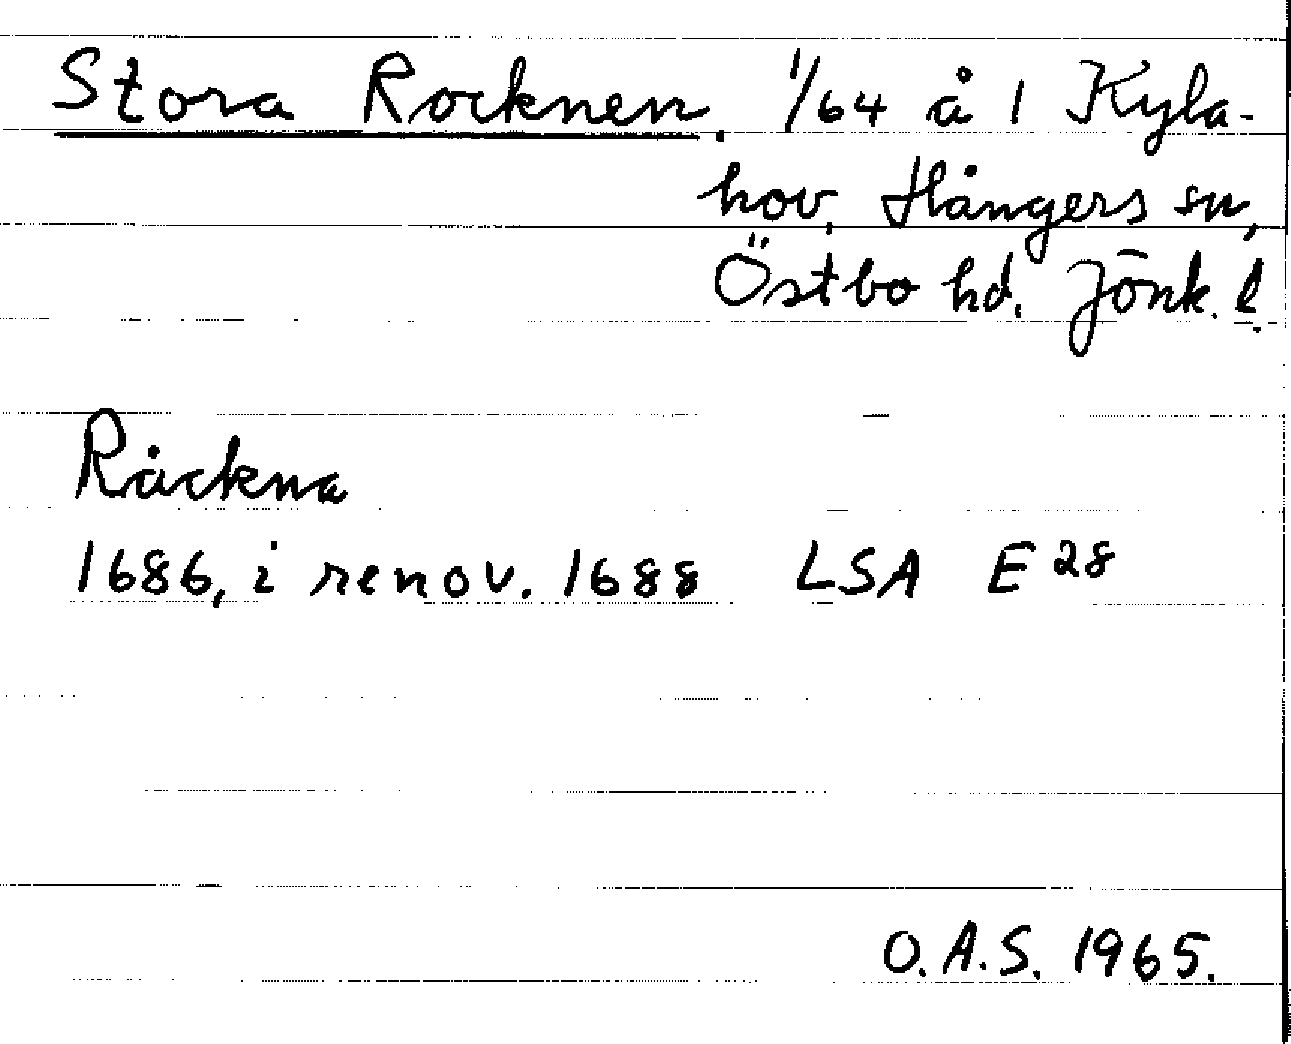 Stora Rocknen. 1/64 å 1 Kyla-
hov, Hångers sn,
Östbo hd. Jönk. l.
Råckna
1686, i renov. 1688 LSA E 28
O.A.S. 1965.